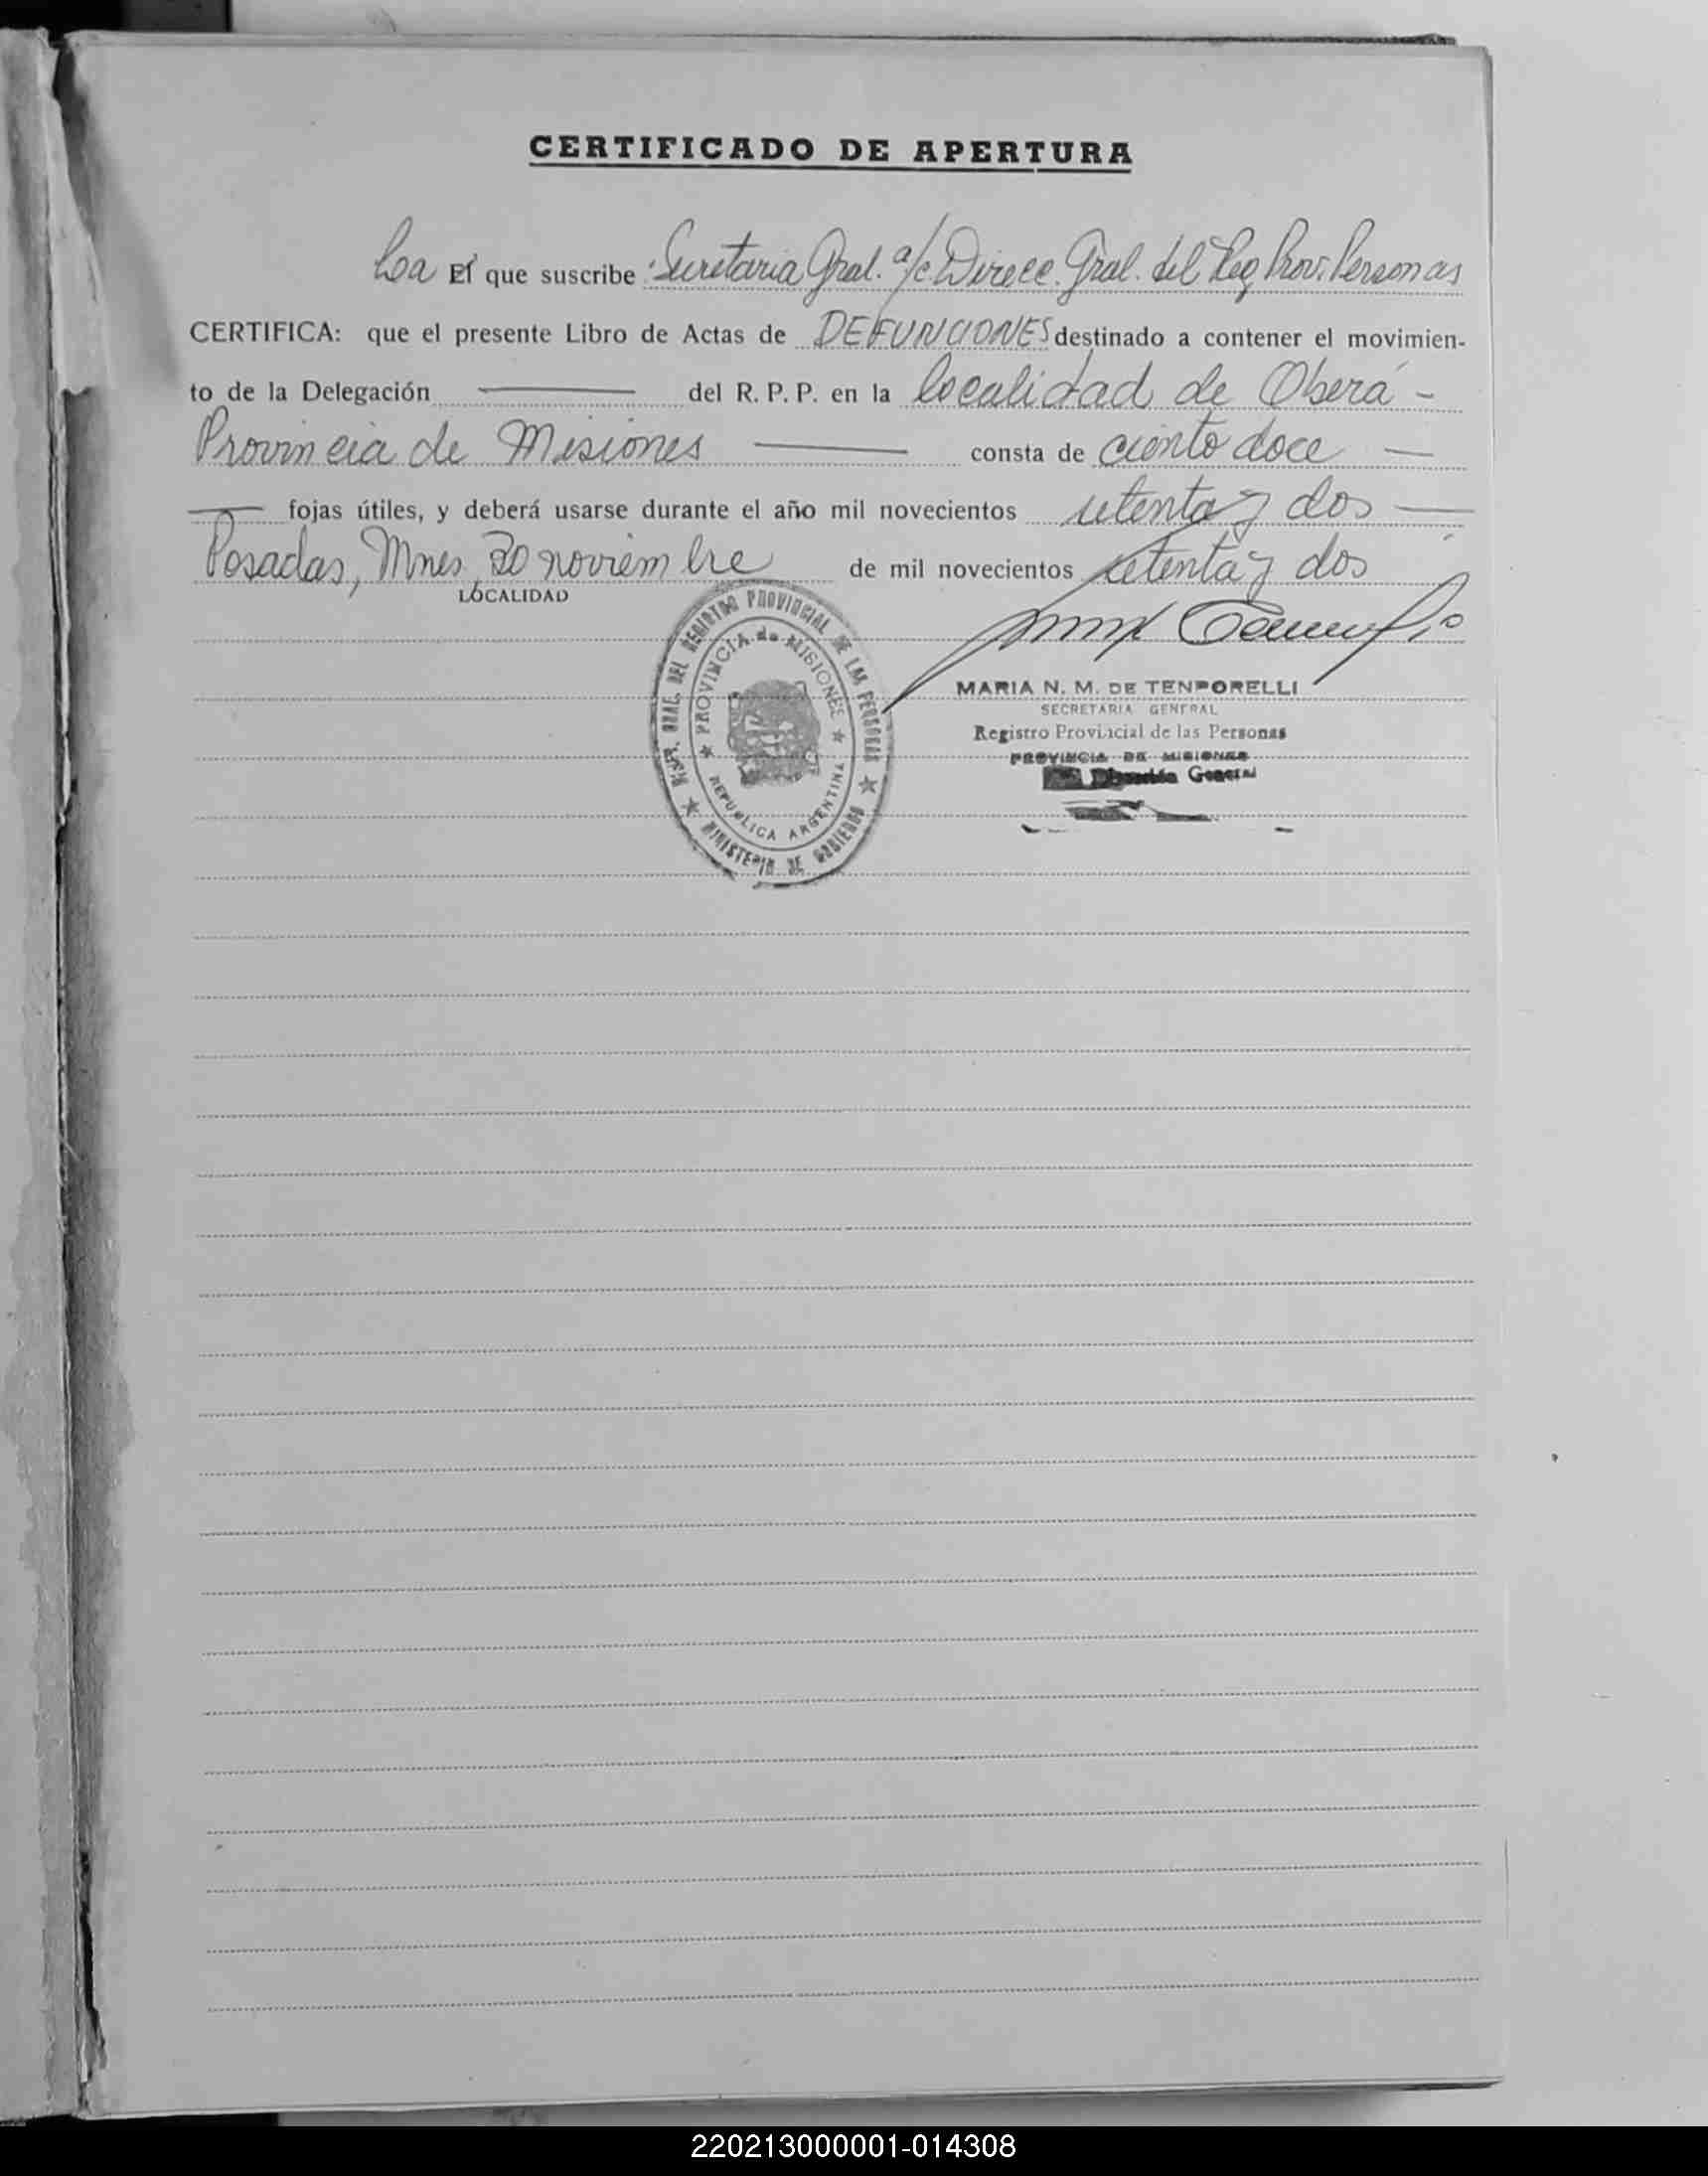 CERTIFICADO DE APERTURA
La El que suscribe Secretaria Gral. a/c Direcc. Gral. del Reg. Prov. Personas
CERTIFICA: que el presente Libro de Actas de DEFUNCIONES destinado a contener el movimien-
to de la Delegación del R. P. P. en la localidad de Oberá -
Provincia de Misiones consta de ciento doce
fojas útiles, y deberá usarse durante el año mil novecientos setenta y dos
Posadas, Mnes, 30 noviembre de mil novecientos setenta y dos
LOCALIDAD
DEL REGISTRO PROVINCIAL DE LAS PERSONAS ★ MINISTERIO DE GOBIERNO ★
★ PROVINCIA de MISIONES ★ REPUBLICA ARGENTINA
MARIA N. M. DE TENPORELLI
SECRETARIA GENERAL
Registro Provincial de las Personas
PROVINCIA DE MISIONES
Dirección General
220213000001-014308